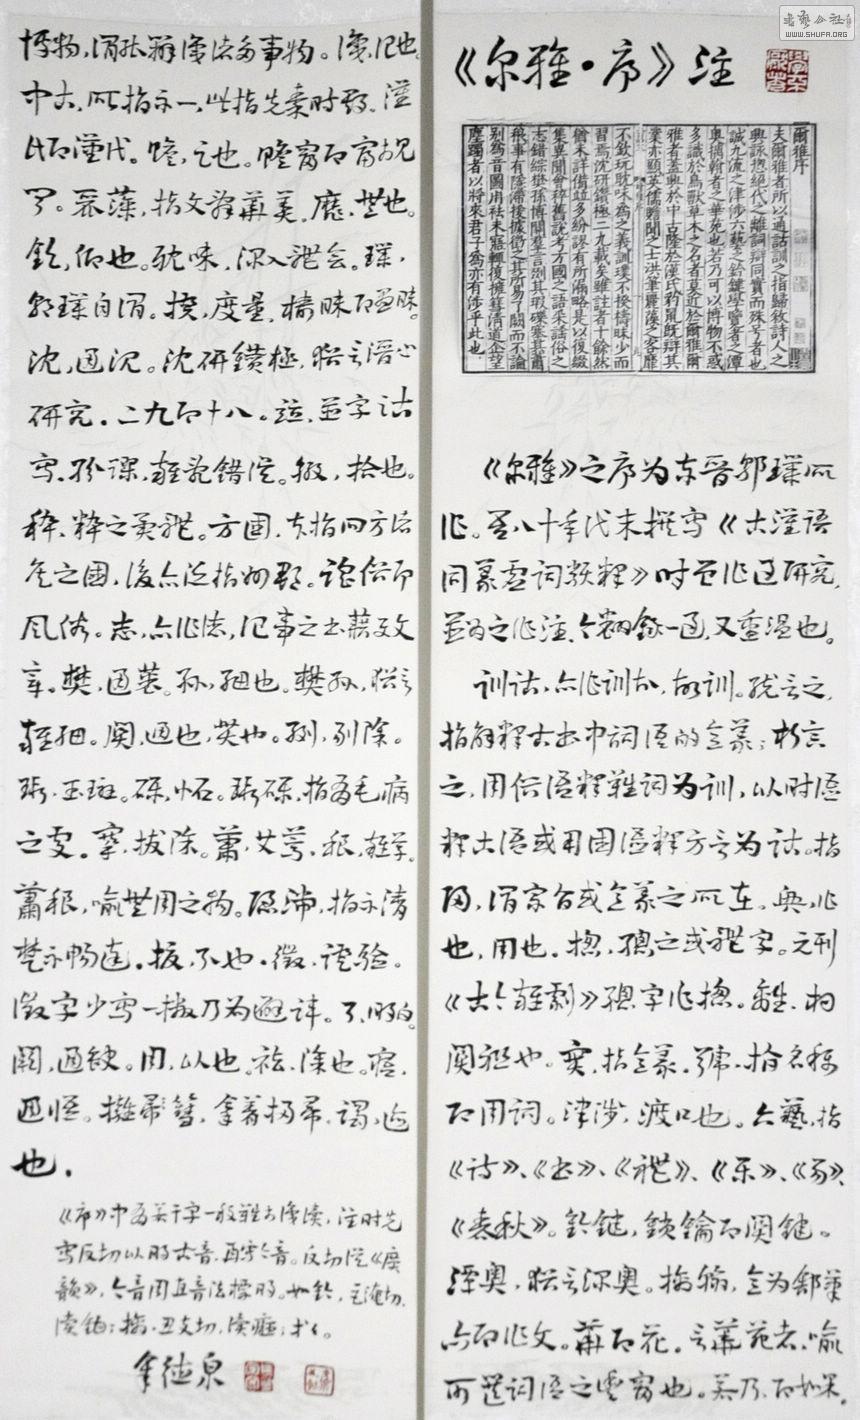 《尔雅·序》注
爾雅序
夫爾雅者所以通詁訓之指歸敘詩人之
興詠揔絕代之離詞辯同實而殊号者也
誠九流之津涉六藝之鈐鍵學覽者之潭
奧摛翰者之華苑也若乃可以博物不惑
多識於鳥獸草木之名者莫近於爾雅爾
雅者蓋興於中古隆於漢氏豹鼠既辯其
業亦顯英儒贍聞之士洪筆麗藻之客靡
不欽玩耽味為之義訓璞不揆檮昧少而
習焉沈研鑽極二九載矣雖註者十餘然
猶未詳備並多紛謬有所漏略是以復綴
集異聞會稡舊說考方國之語采謠俗之
志錯綜樊孫博關羣言剟其瑕礫搴其蕭
稂事有隱滯援據徵之其所易了闕而不論
別為音圖用祛未寤輒復擁篲清道企望
塵躅者以將來君子為亦有涉乎此也
《尔雅》之序为东晋郭璞所
作。吾八十年代末撰写《古漢語
同義虚詞類釋》时曾作过研究，
並为之作注，今翻錄一過，又重温也。
训诂，亦作训故，故训。統言之，
指解釋古书中詞语的含義；析言
之，用俗语釋難詞为训，以时语
釋古语或用國语釋方言为诂。指
歸，谓宗旨或含義之所在。興，作
也，用也。揔，總之或体字。元刊
《古今雜劇》總字作揔。離，相
関聯也。实，指含義。號，指名称
即用詞。津涉，渡口也。六藝，指
《诗》、《书》、《禮》、《乐》、《易》、
《春秋》。鈐鍵，鎖鑰即関键。
潭奥，猶言深奥。摛翰，含为舒筆
亦即作文。華即花。言華苑者，喻
可選詞语之豐富也。若乃，即如果。
博物，谓能辨識诸多事物。識，记也。
中古，所指不一，此指先秦时期。漢
氏即漢代。贍，足也。贍闻即富於见
闻。麗藻，指文辞華美。靡，無也。
欽，仰也。耽味，深入體会。璞，
郭璞自谓。揆，度量，檮昧即愚昧。
沈，通沉。沈研鑽極，猶言潛心
研究。二九即十八。竝，並字古
写。紛謬，雜乱错误。綴，拾也。
稡，粹之異體。方國，本指四方诸
侯之國，後亦泛指州郡。謡俗即
风俗。志，亦作誌，记事之书籍及文
章。樊，通藩。孙，細也。樊孙，猶言
雜細。関，通也，贯也。剟，削除。
瑕，玉斑。礫，小石。瑕礫，指有毛病
之处。搴，拔除。蕭，艾蒿。稂，雜草。
蕭稂，喻無用之物。隱滯，指不清
楚不畅達。援，引也。徵，证验。
徵字少写一横乃为避讳。了，明白。
闕，通缺。用，以也。祛，除也。寤，
通悟。擁彗篲，拿着扫帚，谓迎
也。
《序》中有若干字一般難於識读，注时先
写反切以明古音，再写今音。反切從《廣
韻》，今音用直音法標明。如鈐，巨淹切，
读钱；摛，丑支切，读癡；等等。